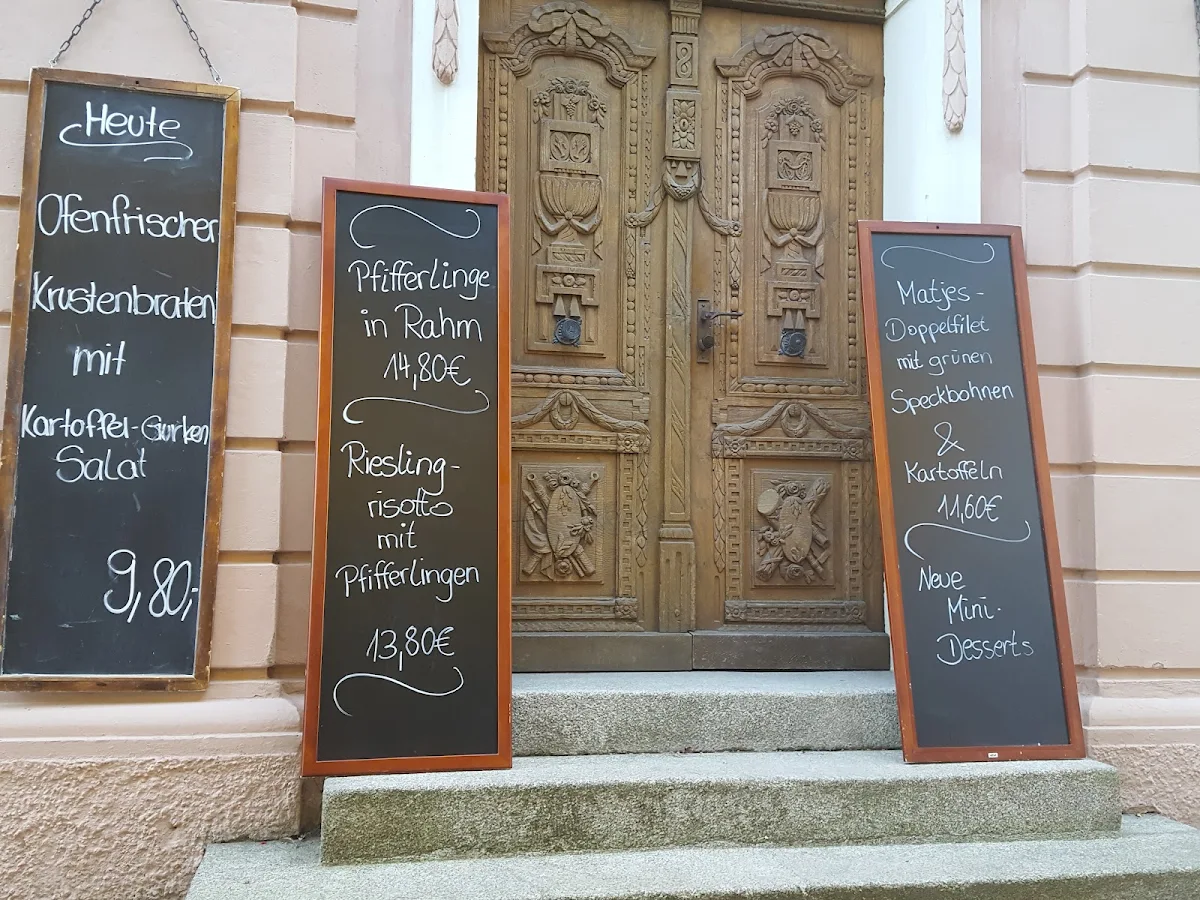 Heute
Ofenfrischer
Krustenbraten
mit
Kartoffel-Gurken
Salat
9,80,-
Pfifferlinge
in Rahm
14,80€
Riesling-
risotto
mit
Pfifferlingen
13,80€
Matjes-
Doppelfilet
mit grünen
Speckbohnen
&
Kartoffeln
11,60€
Neue
Mini-
Desserts